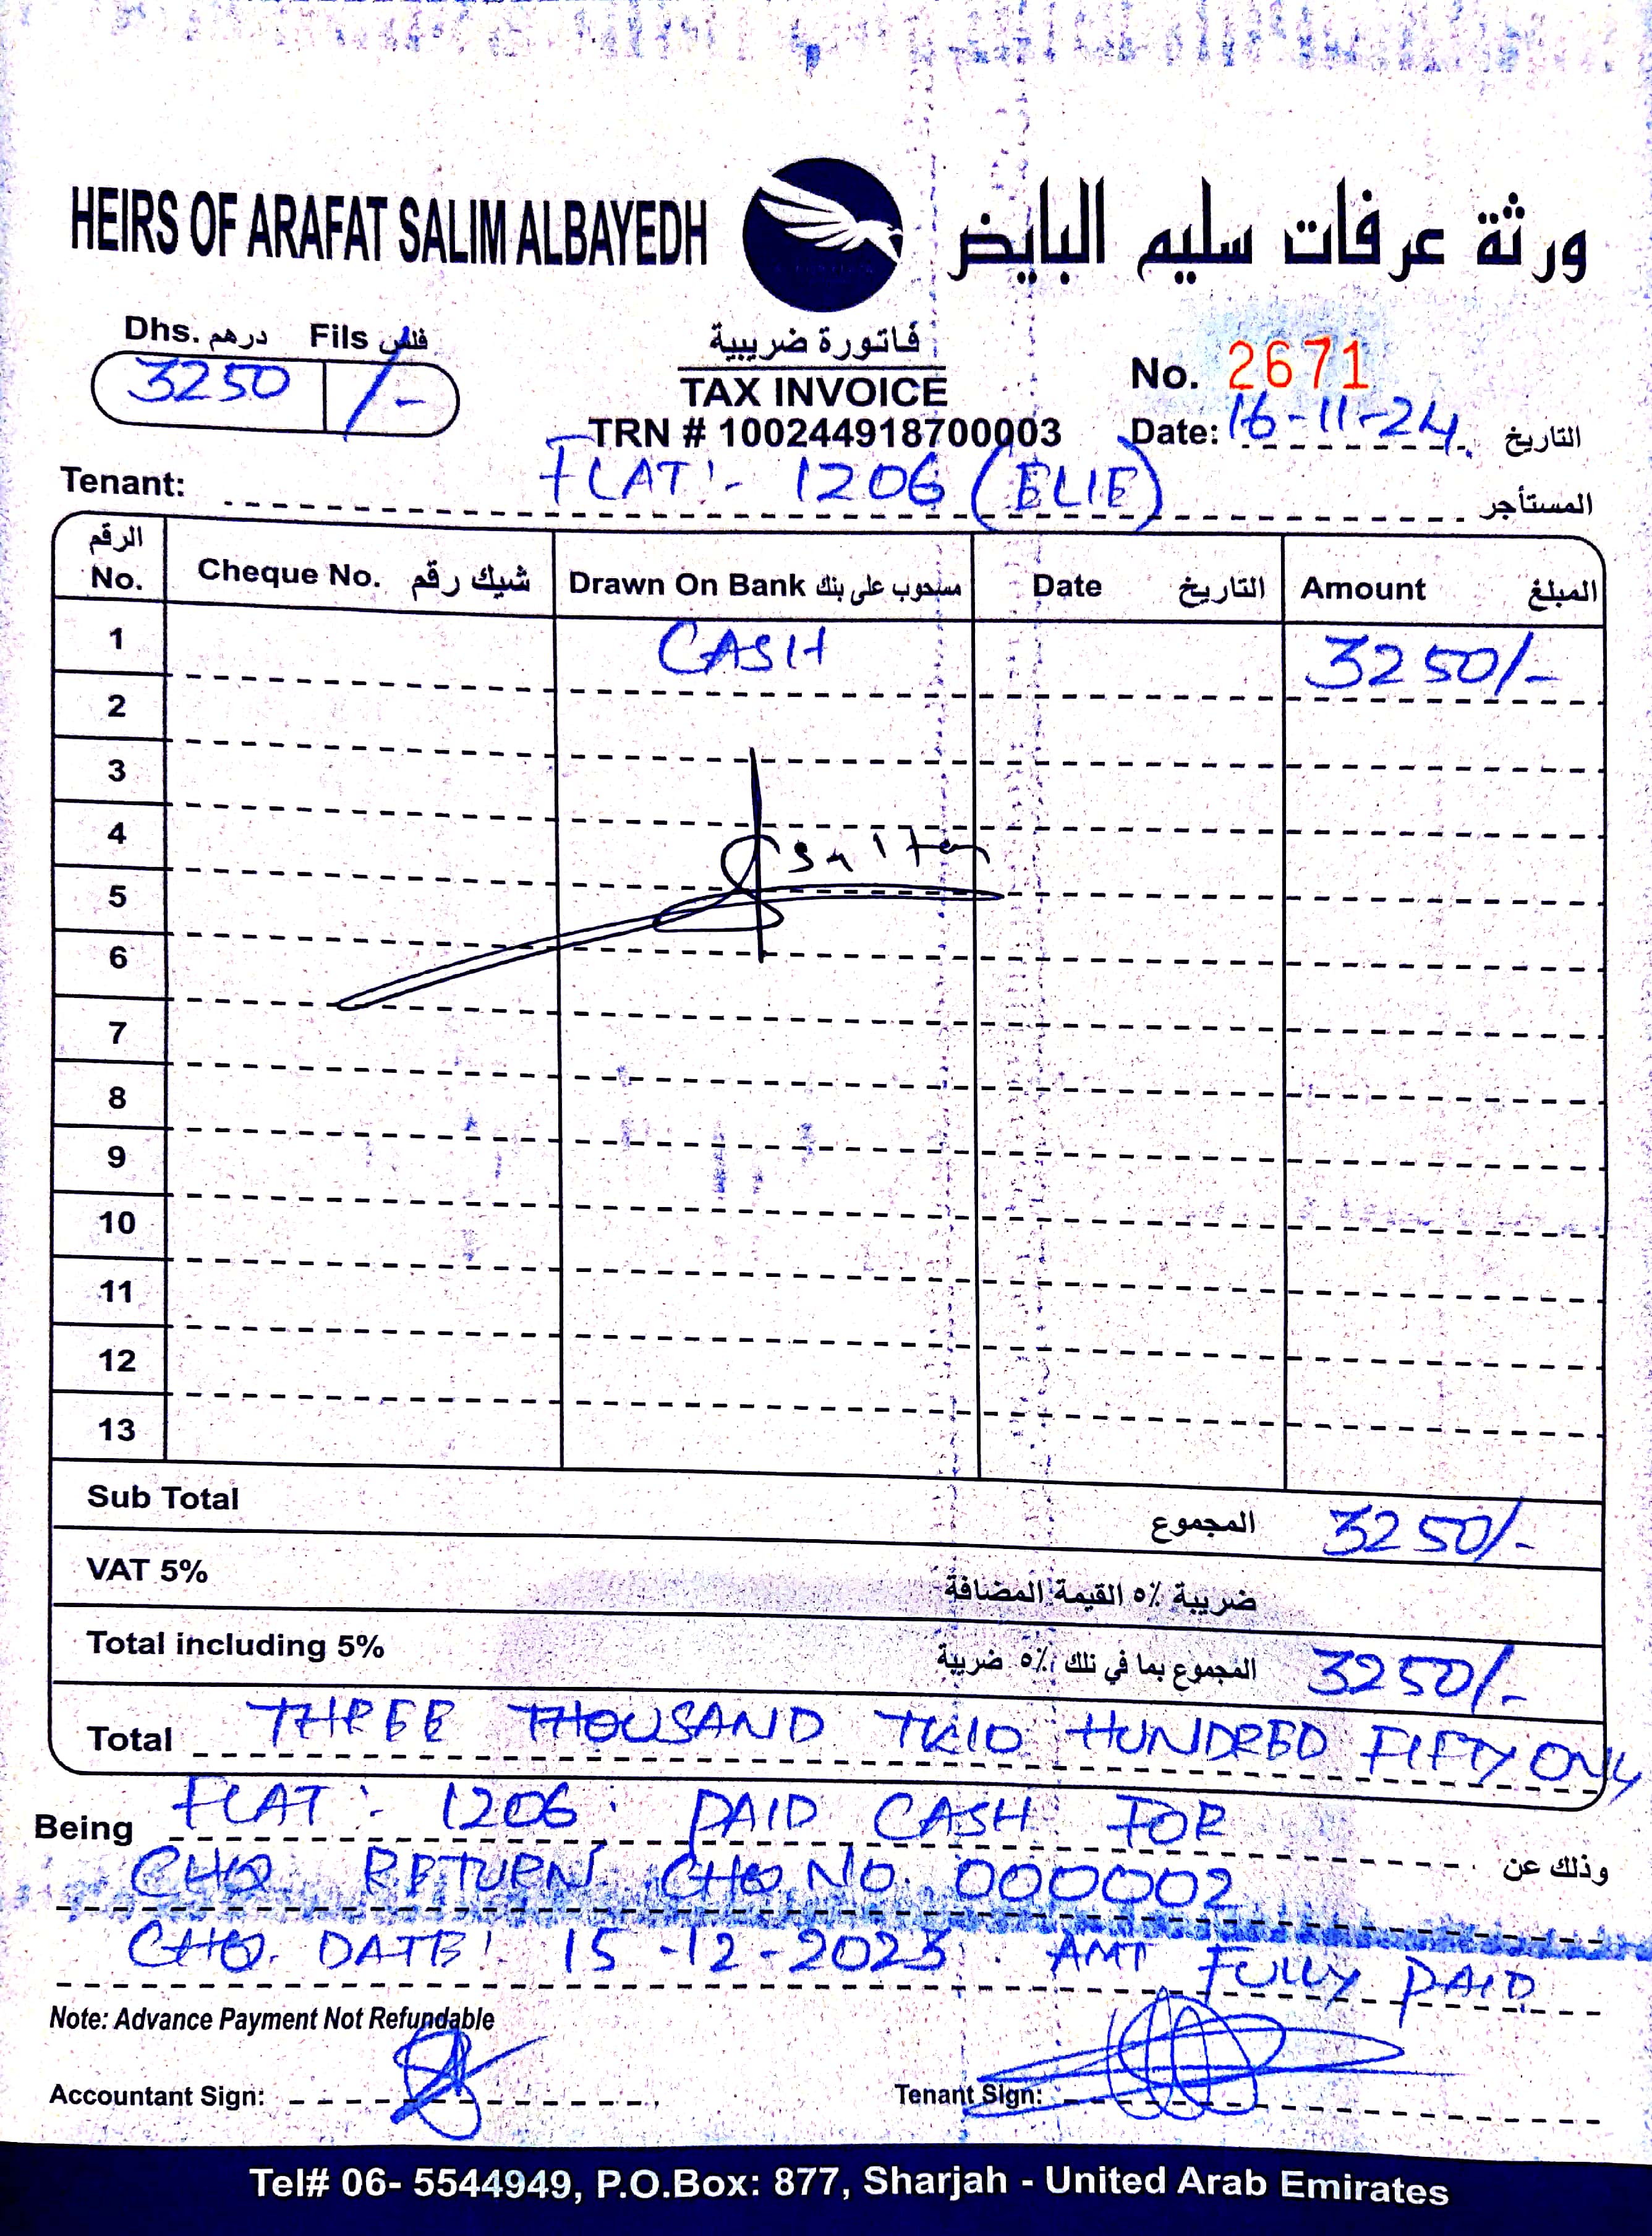 HEIRS OF ARAFAT SALIM ALBAYEDH ورثة عرفات سليم البايض
Dhs. درهم Fils فلس
3250 /-
فاتورة ضريبية
TAX INVOICE
TRN # 100244918700003
No. 2671
Date: 16-11-24 التاريخ
Tenant: FLAT :- 1206 (ELIE) المستأجر
الرقم No. Cheque No. شيك رقم Drawn On Bank مسحوب على بنك Date التاريخ Amount المبلغ
1 CASH 3250/-
2
3
4
5
6
7
8
9
10
11
12
13
Sub Total المجموع 3250/-
VAT 5% ضريبة ٥٪ القيمة المضافة
Total including 5% المجموع بما في تلك ٥٪ ضريبة 3250/-
Total THREE THOUSAND TWO HUNDRED FIFTY ONLY
Being FLAT :- 1206. PAID CASH FOR وذلك عن
CHQ. RETURN. CHQ NO. 000002
CHQ. DATE: 15-12-2023. AMT FULLY PAID
Note: Advance Payment Not Refundable
Accountant Sign: Tenant Sign:
Tel# 06- 5544949, P.O.Box: 877, Sharjah - United Arab Emirates